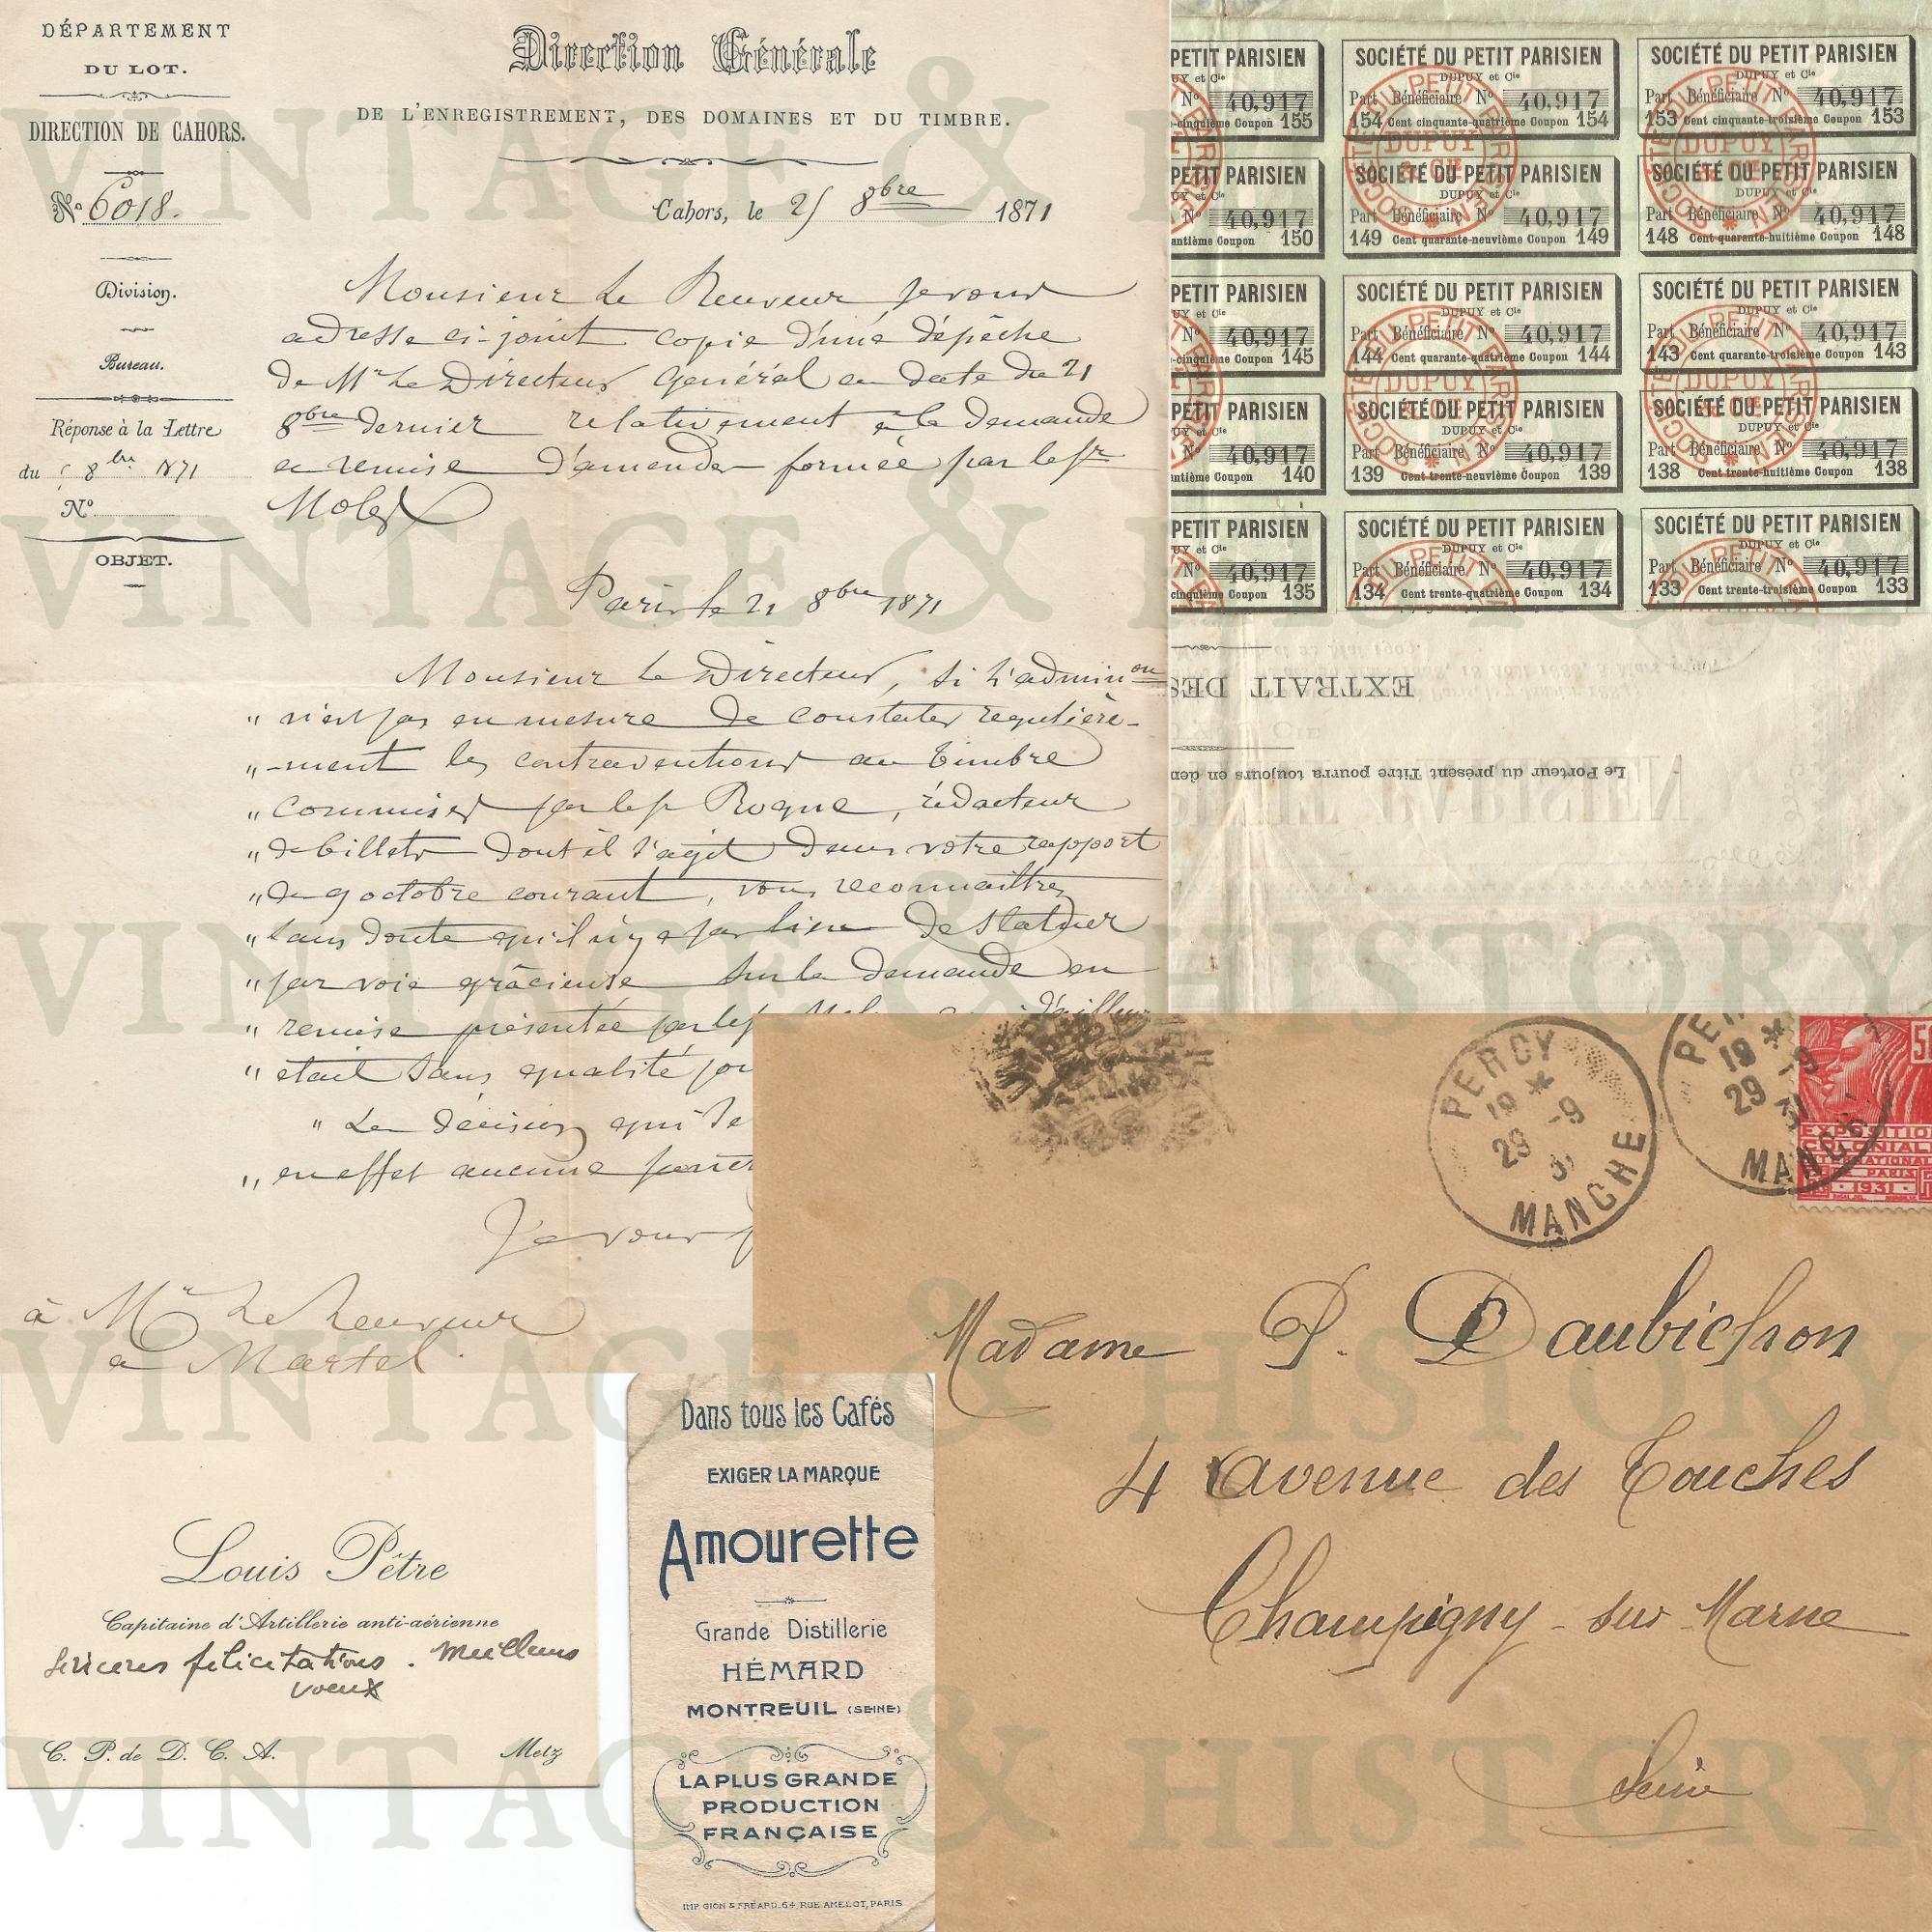 DÉPARTEMENT
DU LOT.
DIRECTION DE CAHORS.
N° 6018.
Division.
Bureau.
Réponse à la Lettre
du 8bre 1871
N°
OBJET.
Direction Générale
DE L'ENREGISTREMENT, DES DOMAINES ET DU TIMBRE.
Cahors, le 25 8bre 1871
Monsieur le Receveur je vous
adresse ci-joint copie d'une dépêche
de Mr le Directeur Général en date du 21
8bre dernier relativement à la demande
en remise d'amendes formée par le sr
Moles
Paris le 21 8bre 1871
Monsieur le Directeur, si l'adminon
" n'est pas en mesure de constater régulière-
"-ment les contraventions au timbre
" commises par le sr Roque, rédacteur
" de billets dont il s'agit dans votre rapport
" du 9 octobre courant, vous reconnaîtrez
" sans doute qu'il n'y a pas lieu de statuer
" par voie grâcieuse sur la demande en
" remise présentée par le sr d'ailleurs
" était sans qualité pou
" La décision qui se
" en effet aucune
Je vous
à Mr Le Receveur
à Martel.
PETIT PARISIEN
UY et Cie
N° 40,917
-cinquième Coupon 155
SOCIÉTÉ DU PETIT PARISIEN
DUPUY et Cie
Part Bénéficiaire N° 40,917
154 Cent cinquante-quatrième Coupon 154
SOCIÉTÉ DU PETIT PARISIEN
DUPUY et Cie
Part Bénéficiaire N° 40,917
153 Cent cinquante-troisième Coupon 153
PETIT PARISIEN
UY et Cie
N° 40,917
antième Coupon 150
SOCIÉTÉ DU PETIT PARISIEN
DUPUY et Cie
Part Bénéficiaire N° 40,917
149 Cent quarante-neuvième Coupon 149
SOCIÉTÉ DU PETIT PARISIEN
DUPUY et Cie
Part Bénéficiaire N° 40,917
148 Cent quarante-huitième Coupon 148
PETIT PARISIEN
UY et Cie
N° 40,917
-cinquième Coupon 145
SOCIÉTÉ DU PETIT PARISIEN
DUPUY et Cie
Part Bénéficiaire N° 40,917
144 Cent quarante-quatrième Coupon 144
SOCIÉTÉ DU PETIT PARISIEN
DUPUY et Cie
Part Bénéficiaire N° 40,917
143 Cent quarante-troisième Coupon 143
PETIT PARISIEN
UY et Cie
N° 40,917
ntième Coupon 140
SOCIÉTÉ DU PETIT PARISIEN
DUPUY et Cie
Part Bénéficiaire N° 40,917
139 Cent trente-neuvième Coupon 139
SOCIÉTÉ DU PETIT PARISIEN
DUPUY et Cie
Part Bénéficiaire N° 40,917
138 Cent trente-huitième Coupon 138
PETIT PARISIEN
UY et Cie
N° 40,917
cinquième Coupon 135
SOCIÉTÉ DU PETIT PARISIEN
DUPUY et Cie
Part Bénéficiaire N° 40,917
134 Cent trente-quatrième Coupon 134
SOCIÉTÉ DU PETIT PARISIEN
DUPUY et Cie
Part Bénéficiaire N° 40,917
133 Cent trente-troisième Coupon 133
SOCIÉTÉ DU PETIT PARISIEN
DUPUY
& CIE
EXTRAIT DES
Le Porteur du présent Titre pourra toujours en dem
PERCY
19 * -9
29 31
MANCHE
PE
19 * -9
29 31
MANCHE
50
EXPOSITIO
COLONIALE
INTERNATIONAL
PARIS
1931
Madame P. Daubichon
4 avenue des Touches
Champigny-sur-Marne
Seine
Louis Pêtre
Capitaine d'Artillerie anti-aérienne
Sincères félicitations. Meilleurs
voeux
C. P. de D. C. A. Metz
Dans tous les Cafés
EXIGER LA MARQUE
Amourette
Grande Distillerie
HÉMARD
MONTREUIL (SEINE)
LA PLUS GRANDE
PRODUCTION
FRANÇAISE
IMP GION & FRÉARD. 64 RUE AMELOT, PARIS
VINTAGE & HISTORY
VINTAGE & HISTORY
VINTAGE & HISTORY
VINTAGE & HISTORY
VINTAGE & HISTORY